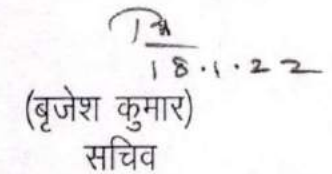 18.1.22
(बृजेश कुमार)
सचिव